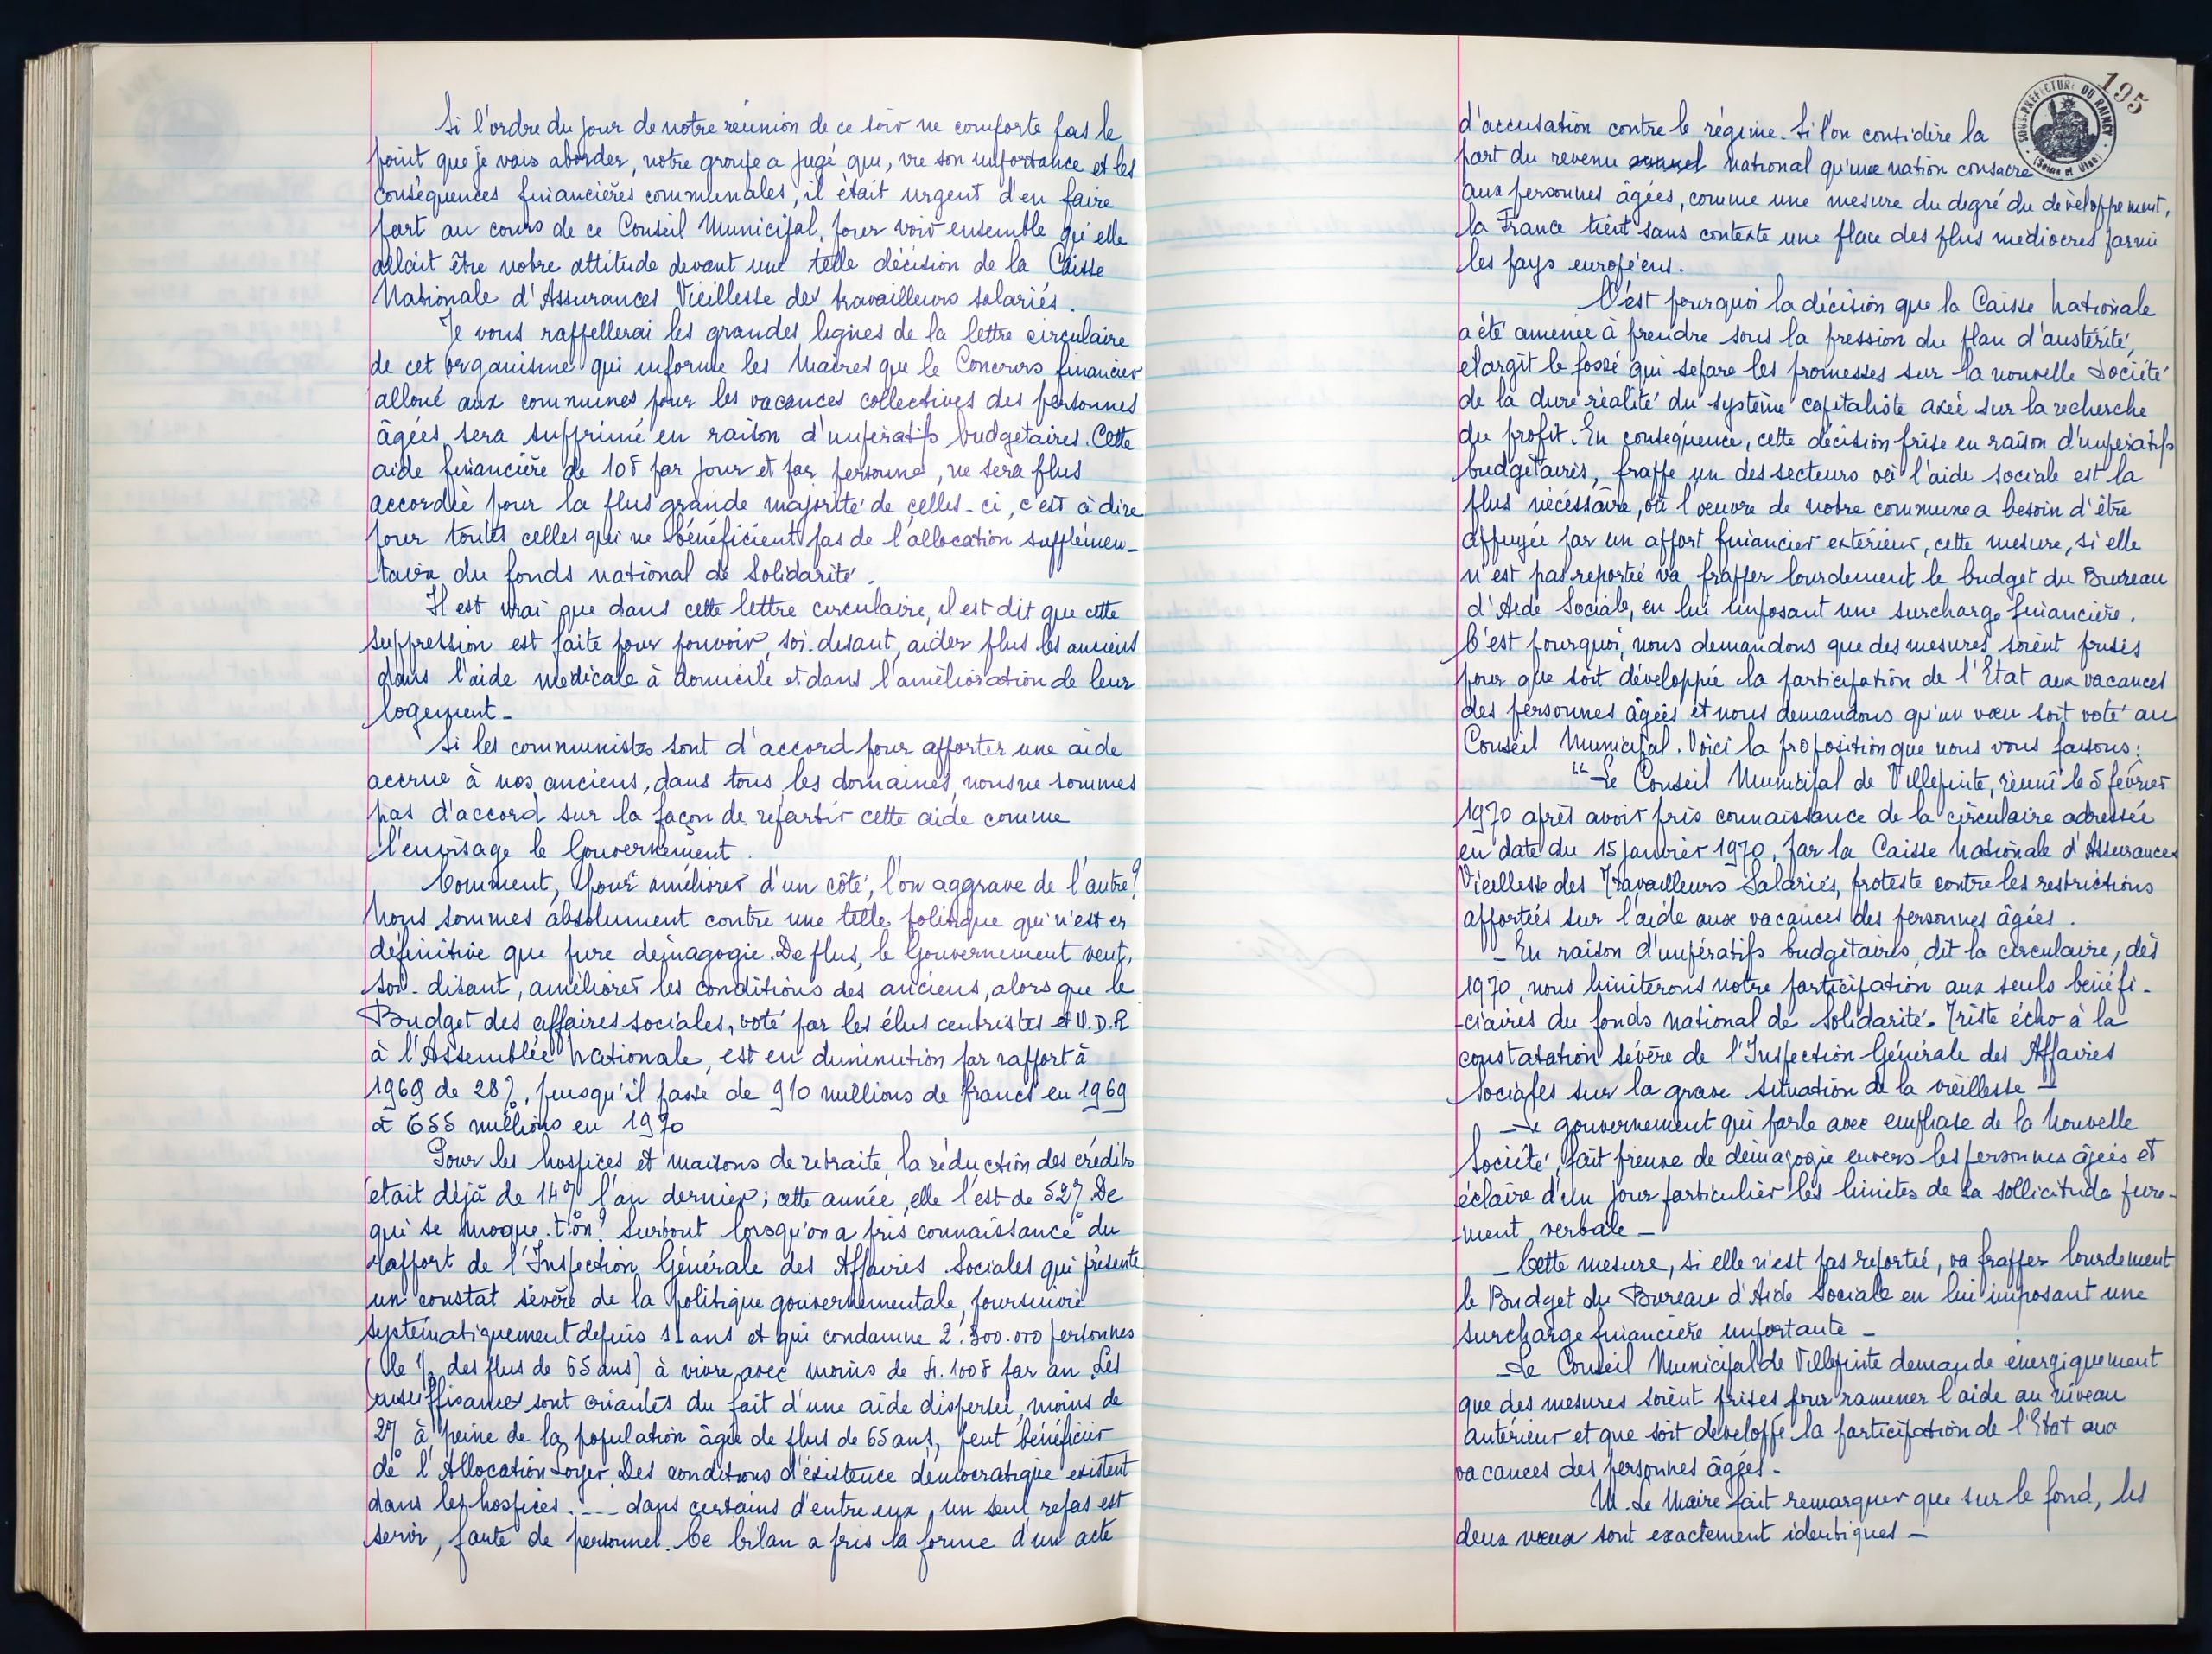 Si l'ordre du jour de notre réunion de ce soir ne comporte pas le
point que je vais aborder, notre groupe a jugé que, vu son importance et les
conséquences financières communales, il était urgent d'en faire
part au cours de ce Conseil Municipal, pour voir ensemble qu'elle
allait être notre attitude devant une telle décision de la Caisse
Nationale d'Assurances Vieillesse des travailleurs salariés.
Je vous rappellerai les grandes lignes de la lettre circulaire
de cet organisme qui informe les Maires que le Concours financier
alloué aux communes pour les vacances collectives des personnes
âgées sera supprimé en raison d'impératifs budgétaires. Cette
aide financière de 10F par jour et par personne, ne sera plus
accordée pour la plus grande majorité de celles-ci, c'est à dire
pour toutes celles qui ne bénéficient pas de l'allocation supplémen-
-taire du fonds national de Solidarité.
Il est vrai que dans cette lettre circulaire, il est dit que cette
suppression est faite pour pouvoir, soi-disant, aider plus les anciens
dans l'aide médicale à domicile et dans l'amélioration de leur
logement-
Si les communistes sont d'accord pour apporter une aide
accrue à nos anciens, dans tous les domaines, nous ne sommes
pas d'accord sur la façon de répartir cette aide comme
l'envisage le Gouvernement.
Comment, pour améliorer d'un côté, l'on aggrave de l'autre?
Nous sommes absolument contre une telle politique qui n'est en
définitive que pure démagogie. De plus, le Gouvernement veut,
soi-disant, améliorer les conditions des anciens, alors que le
Budget des affaires sociales, voté par les élus centristes et U.D.R
à l'Assemblée Nationale, est en diminution par rapport à
1969 de 28%, puisqu'il passe de 910 millions de francs en 1969
à 655 millions en 1970
Pour les hospices et maisons de retraite, la réduction des crédits
était déjà de 14% l'an dernier; cette année, elle l'est de 52%. De
qui se moque-t-on? Surtout lorsqu'on a pris connaissance du
rapport de l'Inspection Générale des Affaires Sociales qui présente
un constat sévère de la politique gouvernementale, poursuivie
systématiquement depuis 11 ans et qui condamne 2.300.000 personnes
(le 1/2 des plus de 65 ans) à vivre avec moins de 4.100F par an. Les
insuffisances sont criantes du fait d'une aide dispersée, moins de
2% à peine de la population âgée de plus de 65 ans, peut bénéficier
de l'Allocation Loyer. Des conditions d'existence démocratique existent
dans les hospices ... dans certains d'entre eux, un seul repas est
servir, faute de personnel. Ce bilan a pris la forme d'un acte
195
SOUS-PRÉFECTURE DU RAINCY
(Seine et Oise)
d'accusation contre le régime. Si l'on considère la
part du revenu annuel national qu'une nation consacre
aux personnes âgées, comme une mesure du degré du développement,
la France tient sans conteste une place des plus médiocres parmi
les pays européens.
C'est pourquoi la décision que la Caisse Nationale
a été amenée à prendre sous la pression du plan d'austérité,
élargit le fossé qui sépare les promesses sur la nouvelle Société
de la dure réalité du système capitaliste axée sur la recherche
du profit. En conséquence, cette décision prise en raison d'impératifs
budgétaires, frappe un des secteurs où l'aide sociale est la
plus nécéssaire, où l'oeuvre de notre commune a besoin d'être
appuyée par un apport financier extérieur, cette mesure, si elle
n'est pas reportée va frapper lourdement le budget du Bureau
d'Aide Sociale, en lui imposant une surcharge financière.
C'est pourquoi, nous demandons que des mesures soient prises
pour que soit développée la participation de l'Etat aux vacances
des personnes âgées et nous demandons qu'un voeu soit voté au
Conseil Municipal. Voici la proposition que nous vous faisons:
"Le Conseil Municipal de Villepinte, réuni le 5 février
1970 après avoir pris connaissance de la circulaire adressée
en date du 15 janvier 1970, par la Caisse Nationale d'Assurances
Vieillesse des Travailleurs Salariés, proteste contre les restrictions
apportées sur l'aide aux vacances des personnes âgées.
- En raison d'impératifs budgétaires, dit la circulaire, dès
1970, nous limiterons notre participation aux seuls bénéfi-
-ciaires du fonds national de Solidarité. Triste écho à la
constatation sévère de l'Inspection Générale des Affaires
Sociales sur la grave situation de la vieillesse -
- Le gouvernement qui parle avec emphase de la Nouvelle
Société, fait preuve de démagogie envers les personnes âgées et
éclaire d'un jour particulier les limites de sa sollicitude pure-
-ment verbale -
- Cette mesure, si elle n'est pas reportée, va frapper lourdement
le Budget du Bureau d'Aide Sociale en lui imposant une
surcharge financière importante -
- Le Conseil Municipal de Villepinte demande énergiquement
que des mesures soient prises pour ramener l'aide au niveau
antérieur et que soit développé la participation de l'Etat aux
vacances des personnes âgées-
M. Le Maire fait remarquer que sur le fond, les
deux voeux sont exactement identiques -